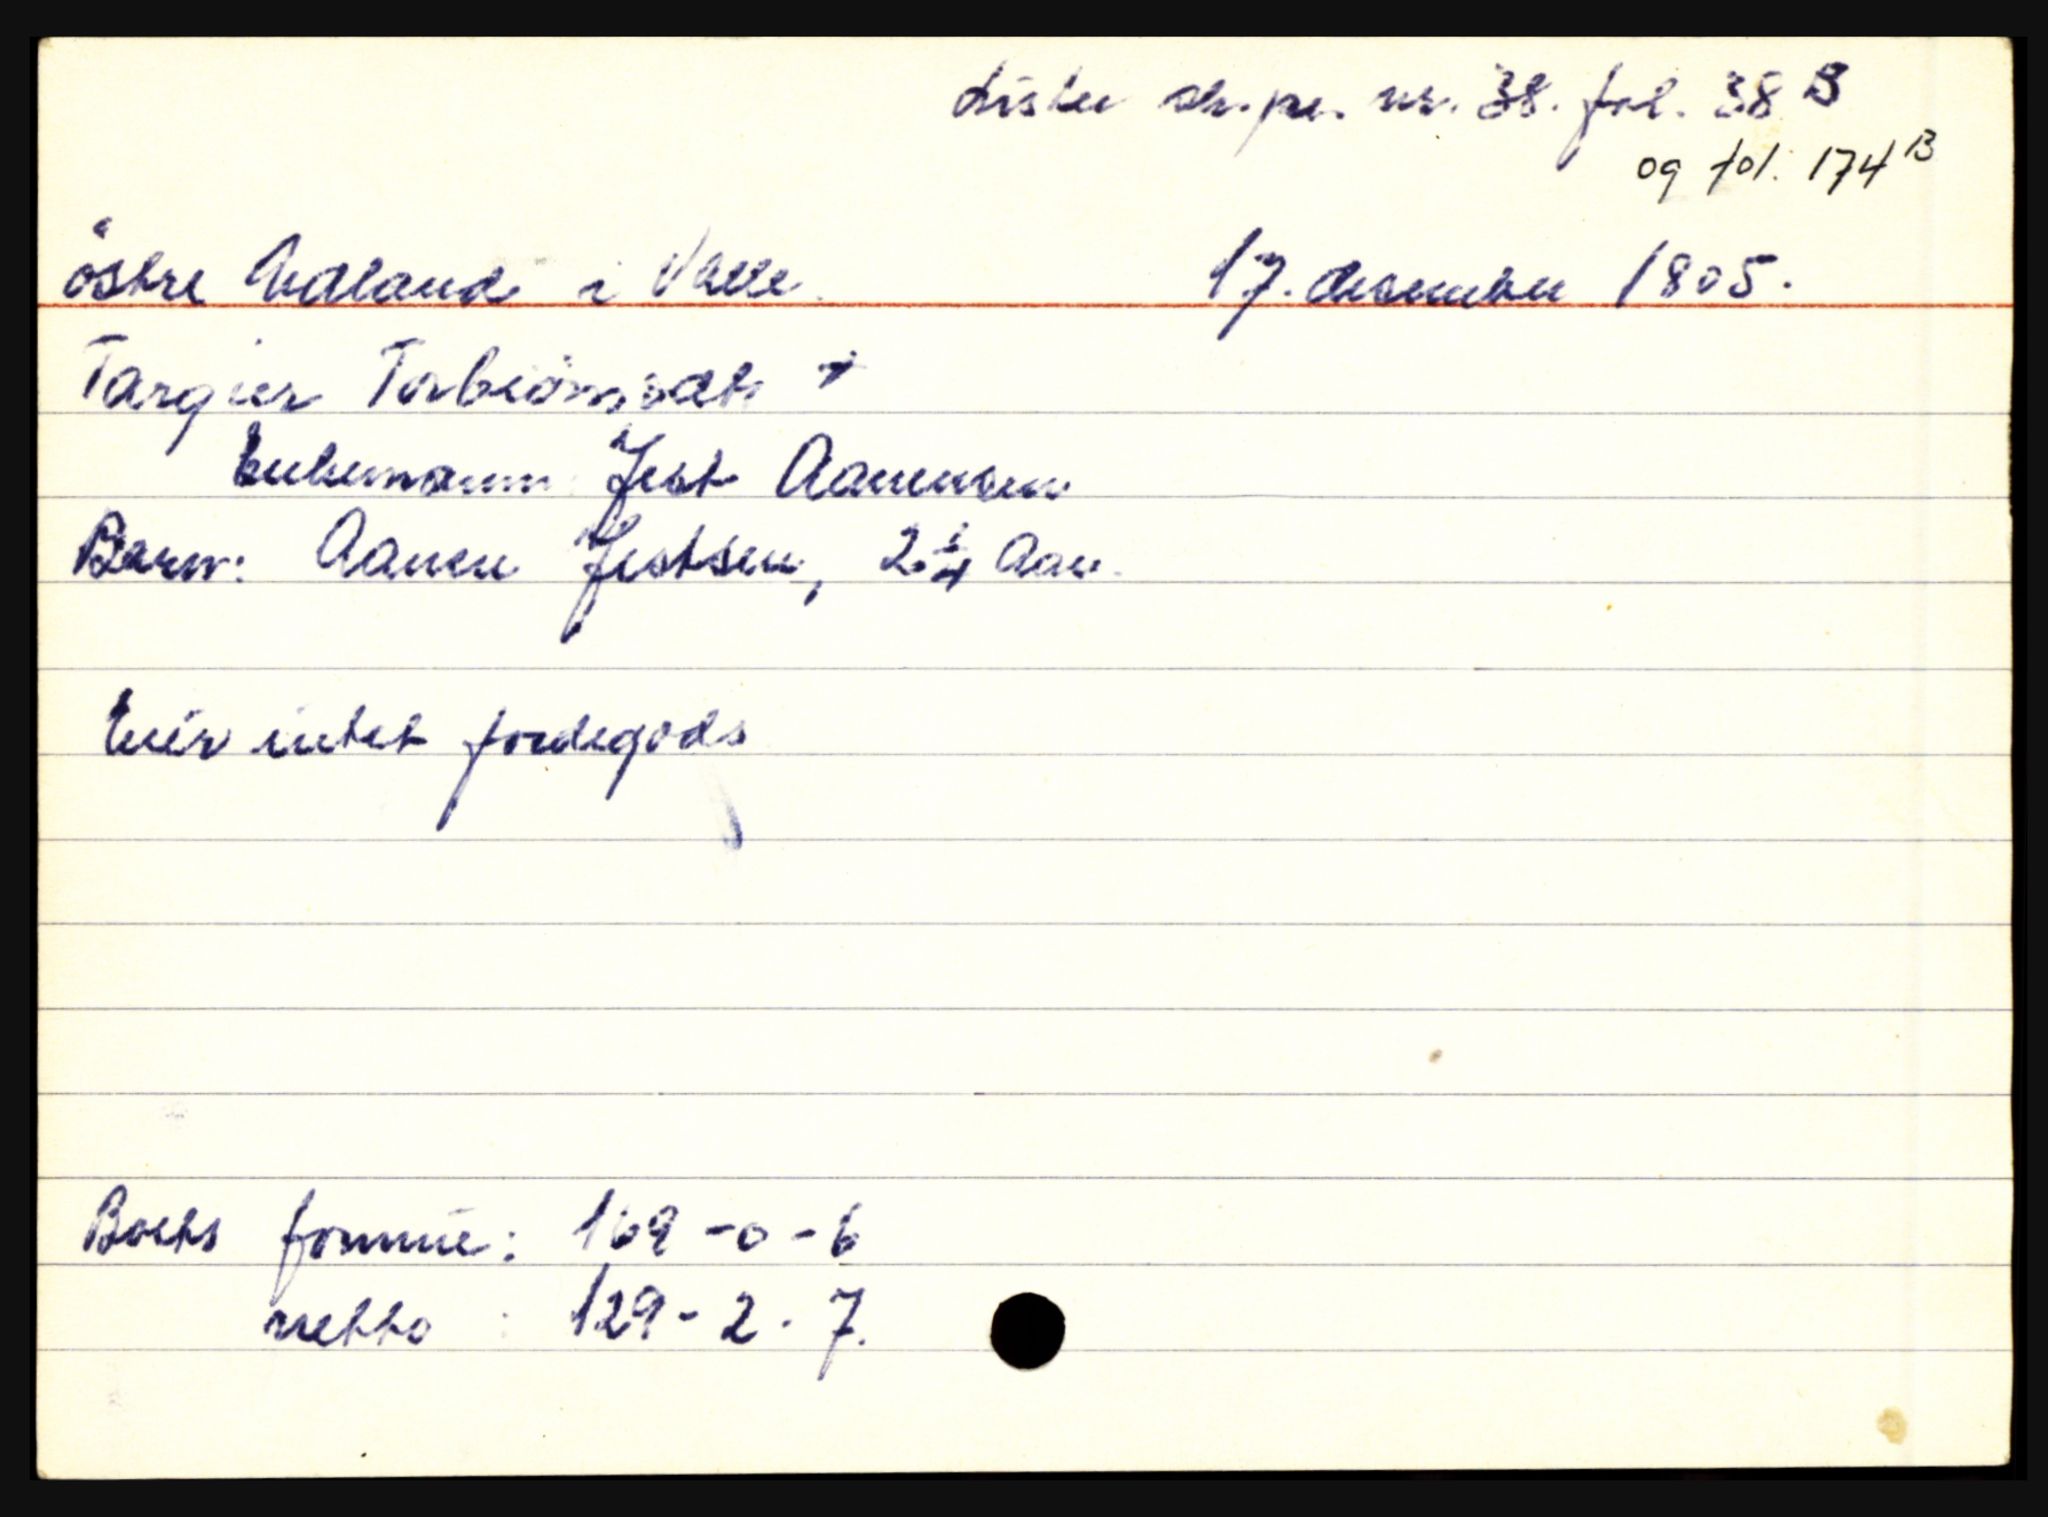 Lister sk.pr. nr. 38. fol. 38 B
og fol. 174 B
östre Udland i Valle. 17. desember 1805.
Targier Torbiörnsdtr +
Enkemann Jest Aanensen
Barn: Aanen Jestsen, 2 1/4 Aar.
Eiier intet jordegods
Boets formue: 169 - 0 - 6
netto : 129 - 2 - 7.